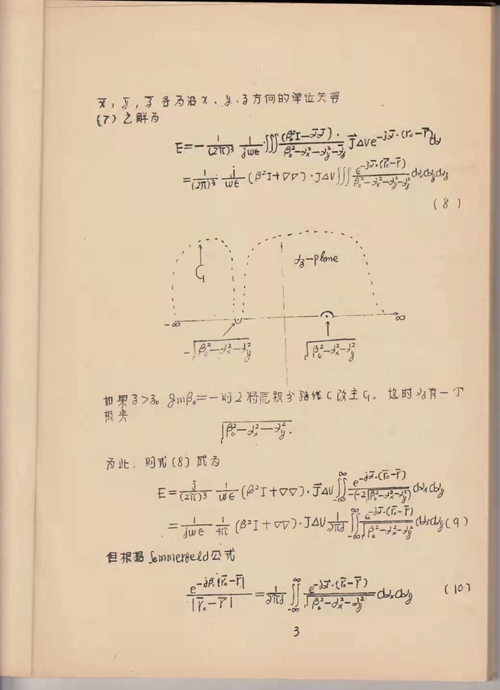 x̄, ȳ, z̄ 各为沿 x、y、z 方向的单位矢号
(7) 之解为
E=-\frac{1}{(2π)^3} \frac{1}{jωε} ∭ \frac{(β_0^2 I-\vec{α}\vec{α})·}{β_0^2-α_x^2-α_y^2-α_z^2} \vec{J}ΔV e^{-j\vec{α}·(r_0-\vec{r})}dα
=\frac{1}{(2π)^3} \frac{j}{ωε} (β^2I+∇∇)·JΔV∭\frac{e^{-j\vec{α}·(\vec{r_0}-\vec{r})}}{β_0^2-α_x^2-α_y^2-α_z^2}dα_xdα_ydα_z
(8)
C_1
α_z-plane
-∞
∞
-\sqrt{β_0^2-α_x^2-α_y^2}
\sqrt{β_0^2-α_x^2-α_y^2}
如果 z>z_0 Imβ_0=- 则 将 积分路线 C 改主 C_1. 这时 α_z 有一个
\sqrt{β_0^2-α_x^2-α_y^2}.
为此, 则式(8)成为
E=\frac{j}{(2π)^3} \frac{1}{ωε} (β^2I+∇∇)·\vec{J}ΔV∬_{-∞}^{∞}\frac{e^{-j\vec{α}·(\vec{r_0}-\vec{r})}}{-(-2\sqrt{β_0^2-α_x^2-α_y^2})}dα_xdα_y
=\frac{1}{jωε} \frac{1}{4π} (β^2I+∇∇)·\vec{J}ΔV\frac{1}{2πj}∬_{-∞}^{∞}\frac{e^{-j\vec{α}·(\vec{r_0}-\vec{r})}}{\sqrt{β_0^2-α_x^2-α_y^2}}dα_xdα_y (9)
但根据 Sommerfeld 公式
\frac{e^{-jβ_0|\vec{r_0}-\vec{r}|}}{|\vec{r_0}-\vec{r}|}=\frac{1}{2πj}∬_{-∞}^{∞}\frac{e^{-j\vec{α}·(\vec{r_0}-\vec{r})}}{\sqrt{β_0^2-α_x^2-α_y^2}}dα_xdα_y (10)
3